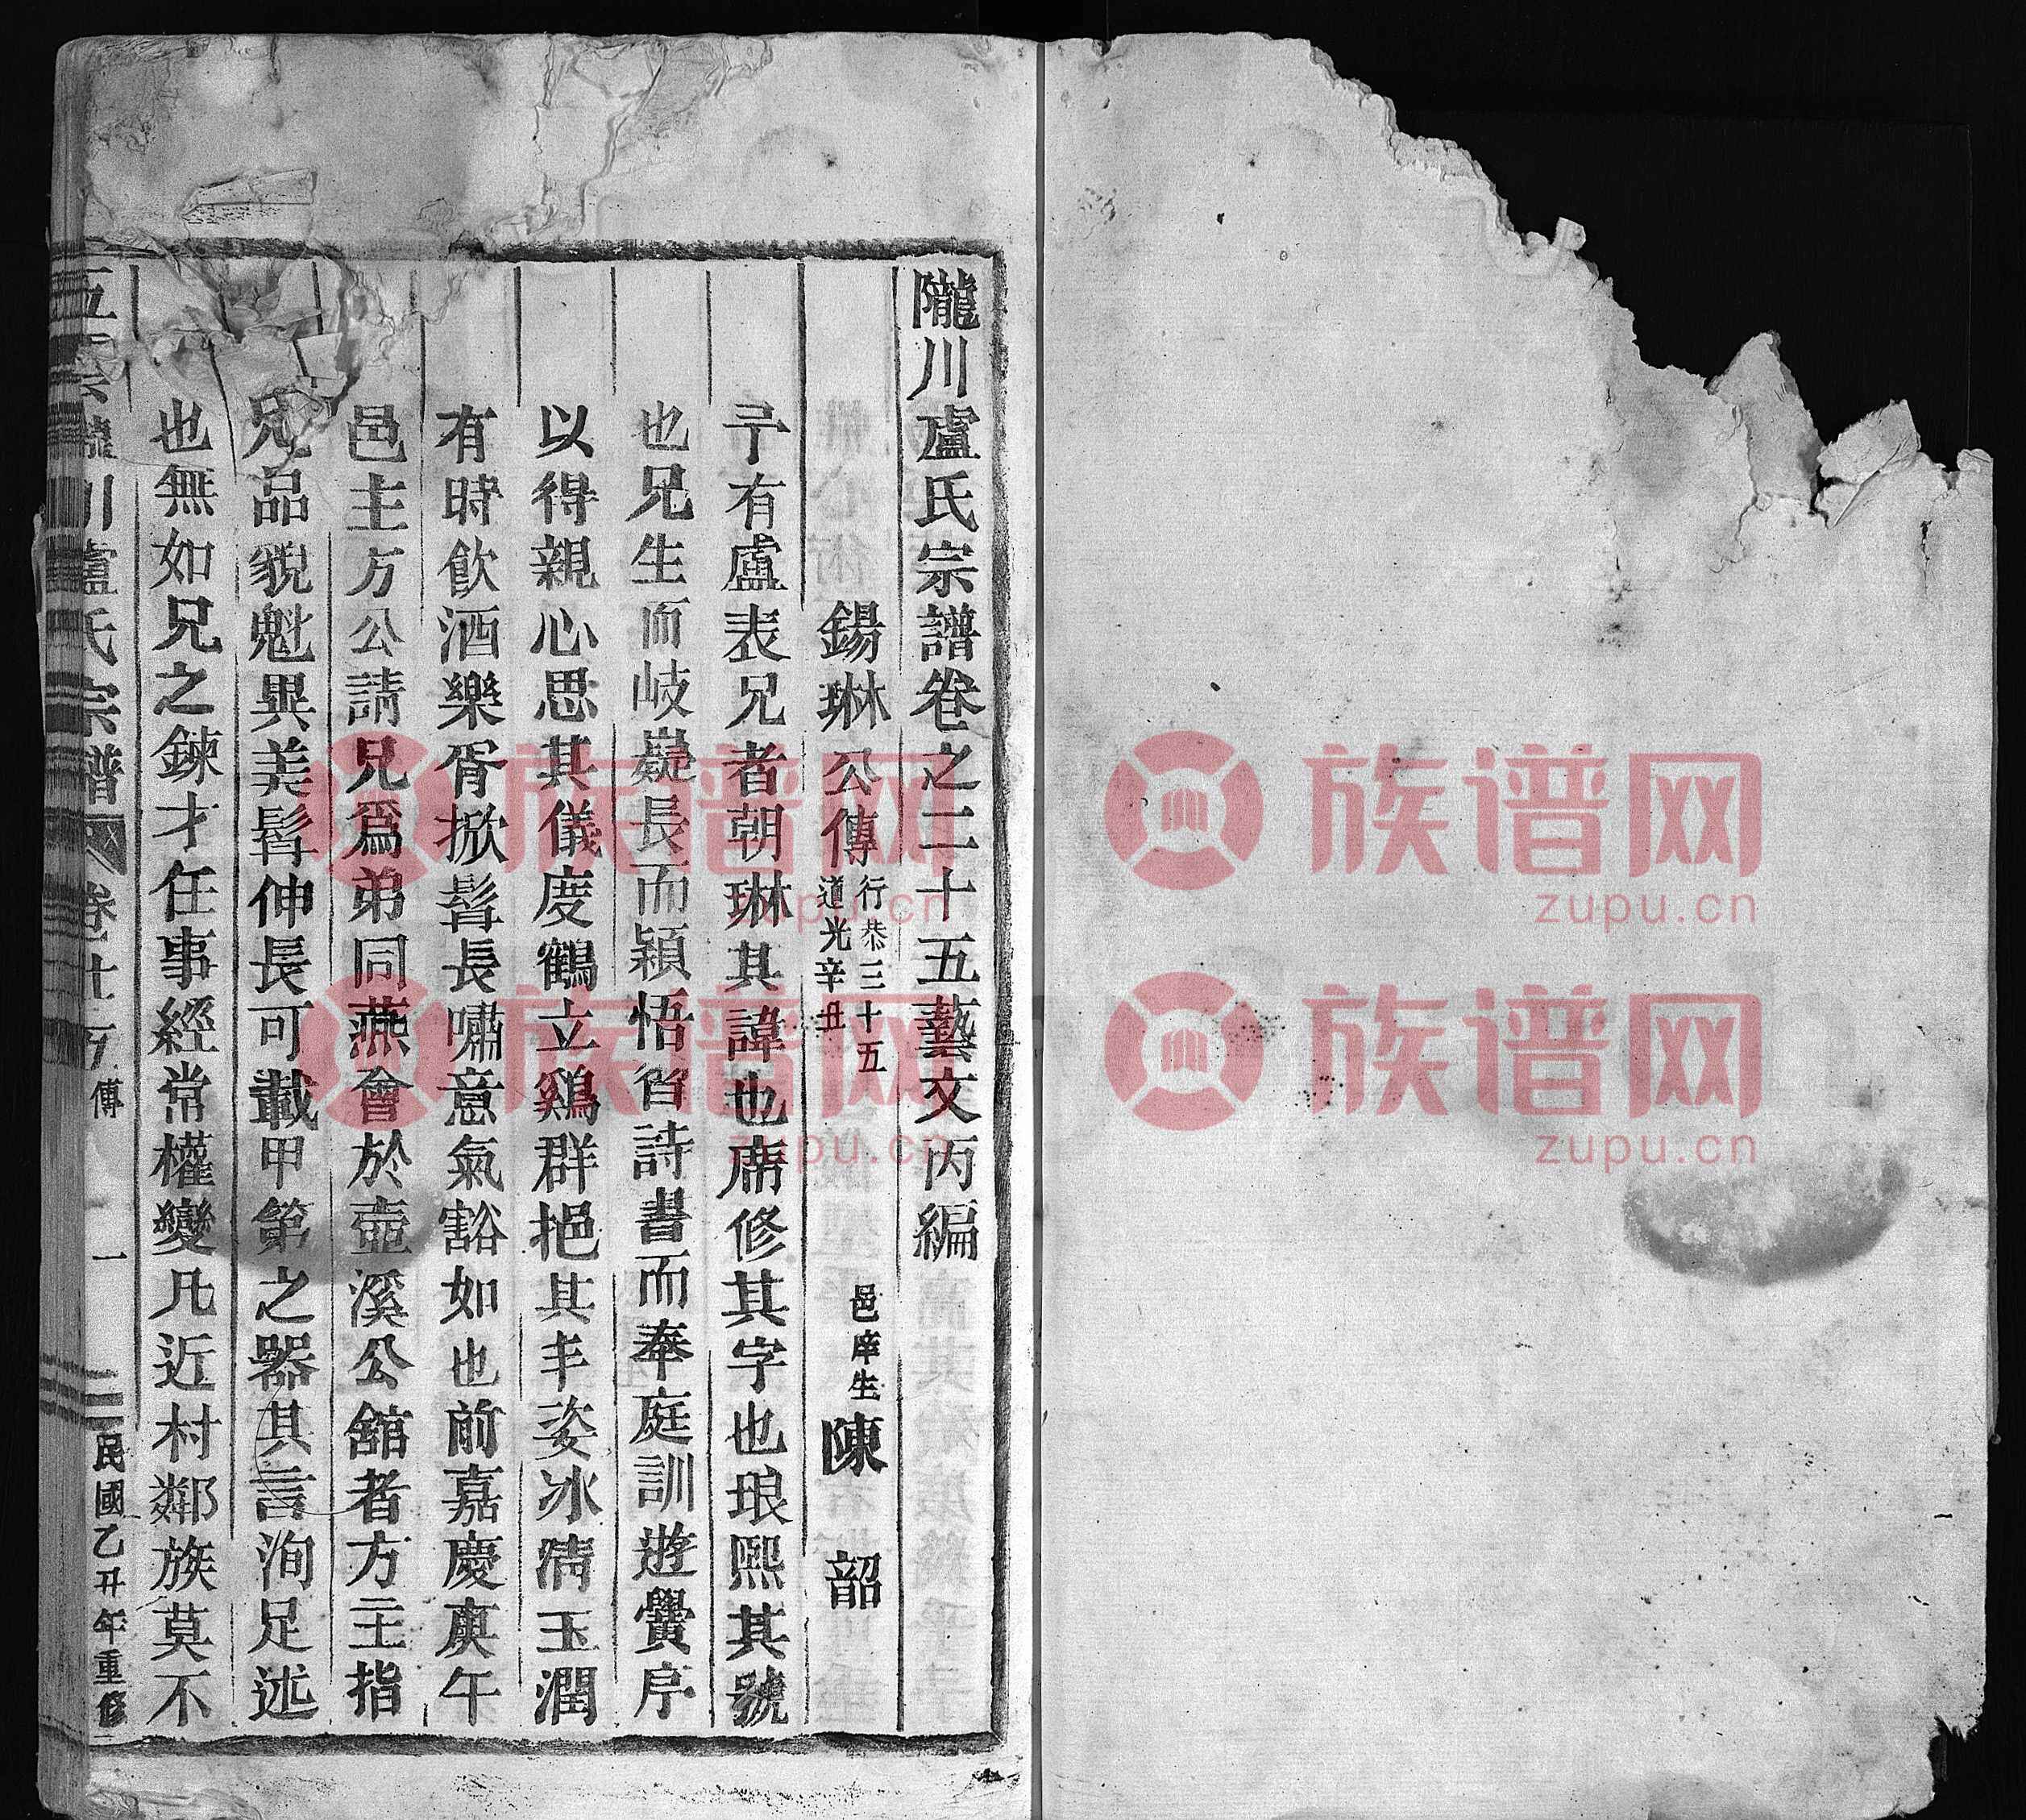 隴川盧氏宗譜卷之二十五藝文丙編
錫琳公傳 行恭三十五 道光辛丑 邑庠生 陳 韶
予有盧表兄者朝琳其諱也席修其字也琅熙其號
也兄生而岐嶷長而穎悟習詩書而奉庭訓遊黌序
以得親心思其儀度鶴立鷄群挹其丰姿冰清玉潤
有時飲酒樂胥掀髯長嘯意氣豁如也前嘉慶庚午
邑主方公請兄爲弟同燕會於壺溪公舘者方主指
兄品貌魁異美髯伸長可載甲第之器其言洵足述
也無如兄之鍊才任事經常權變凡近村鄰族莫不
五雲隴川盧氏宗譜 卷廿五 傳 一 民國乙丑年重修
族谱网
zupu.cn
族谱网
zupu.cn
族谱网
zupu.cn
族谱网
zupu.cn